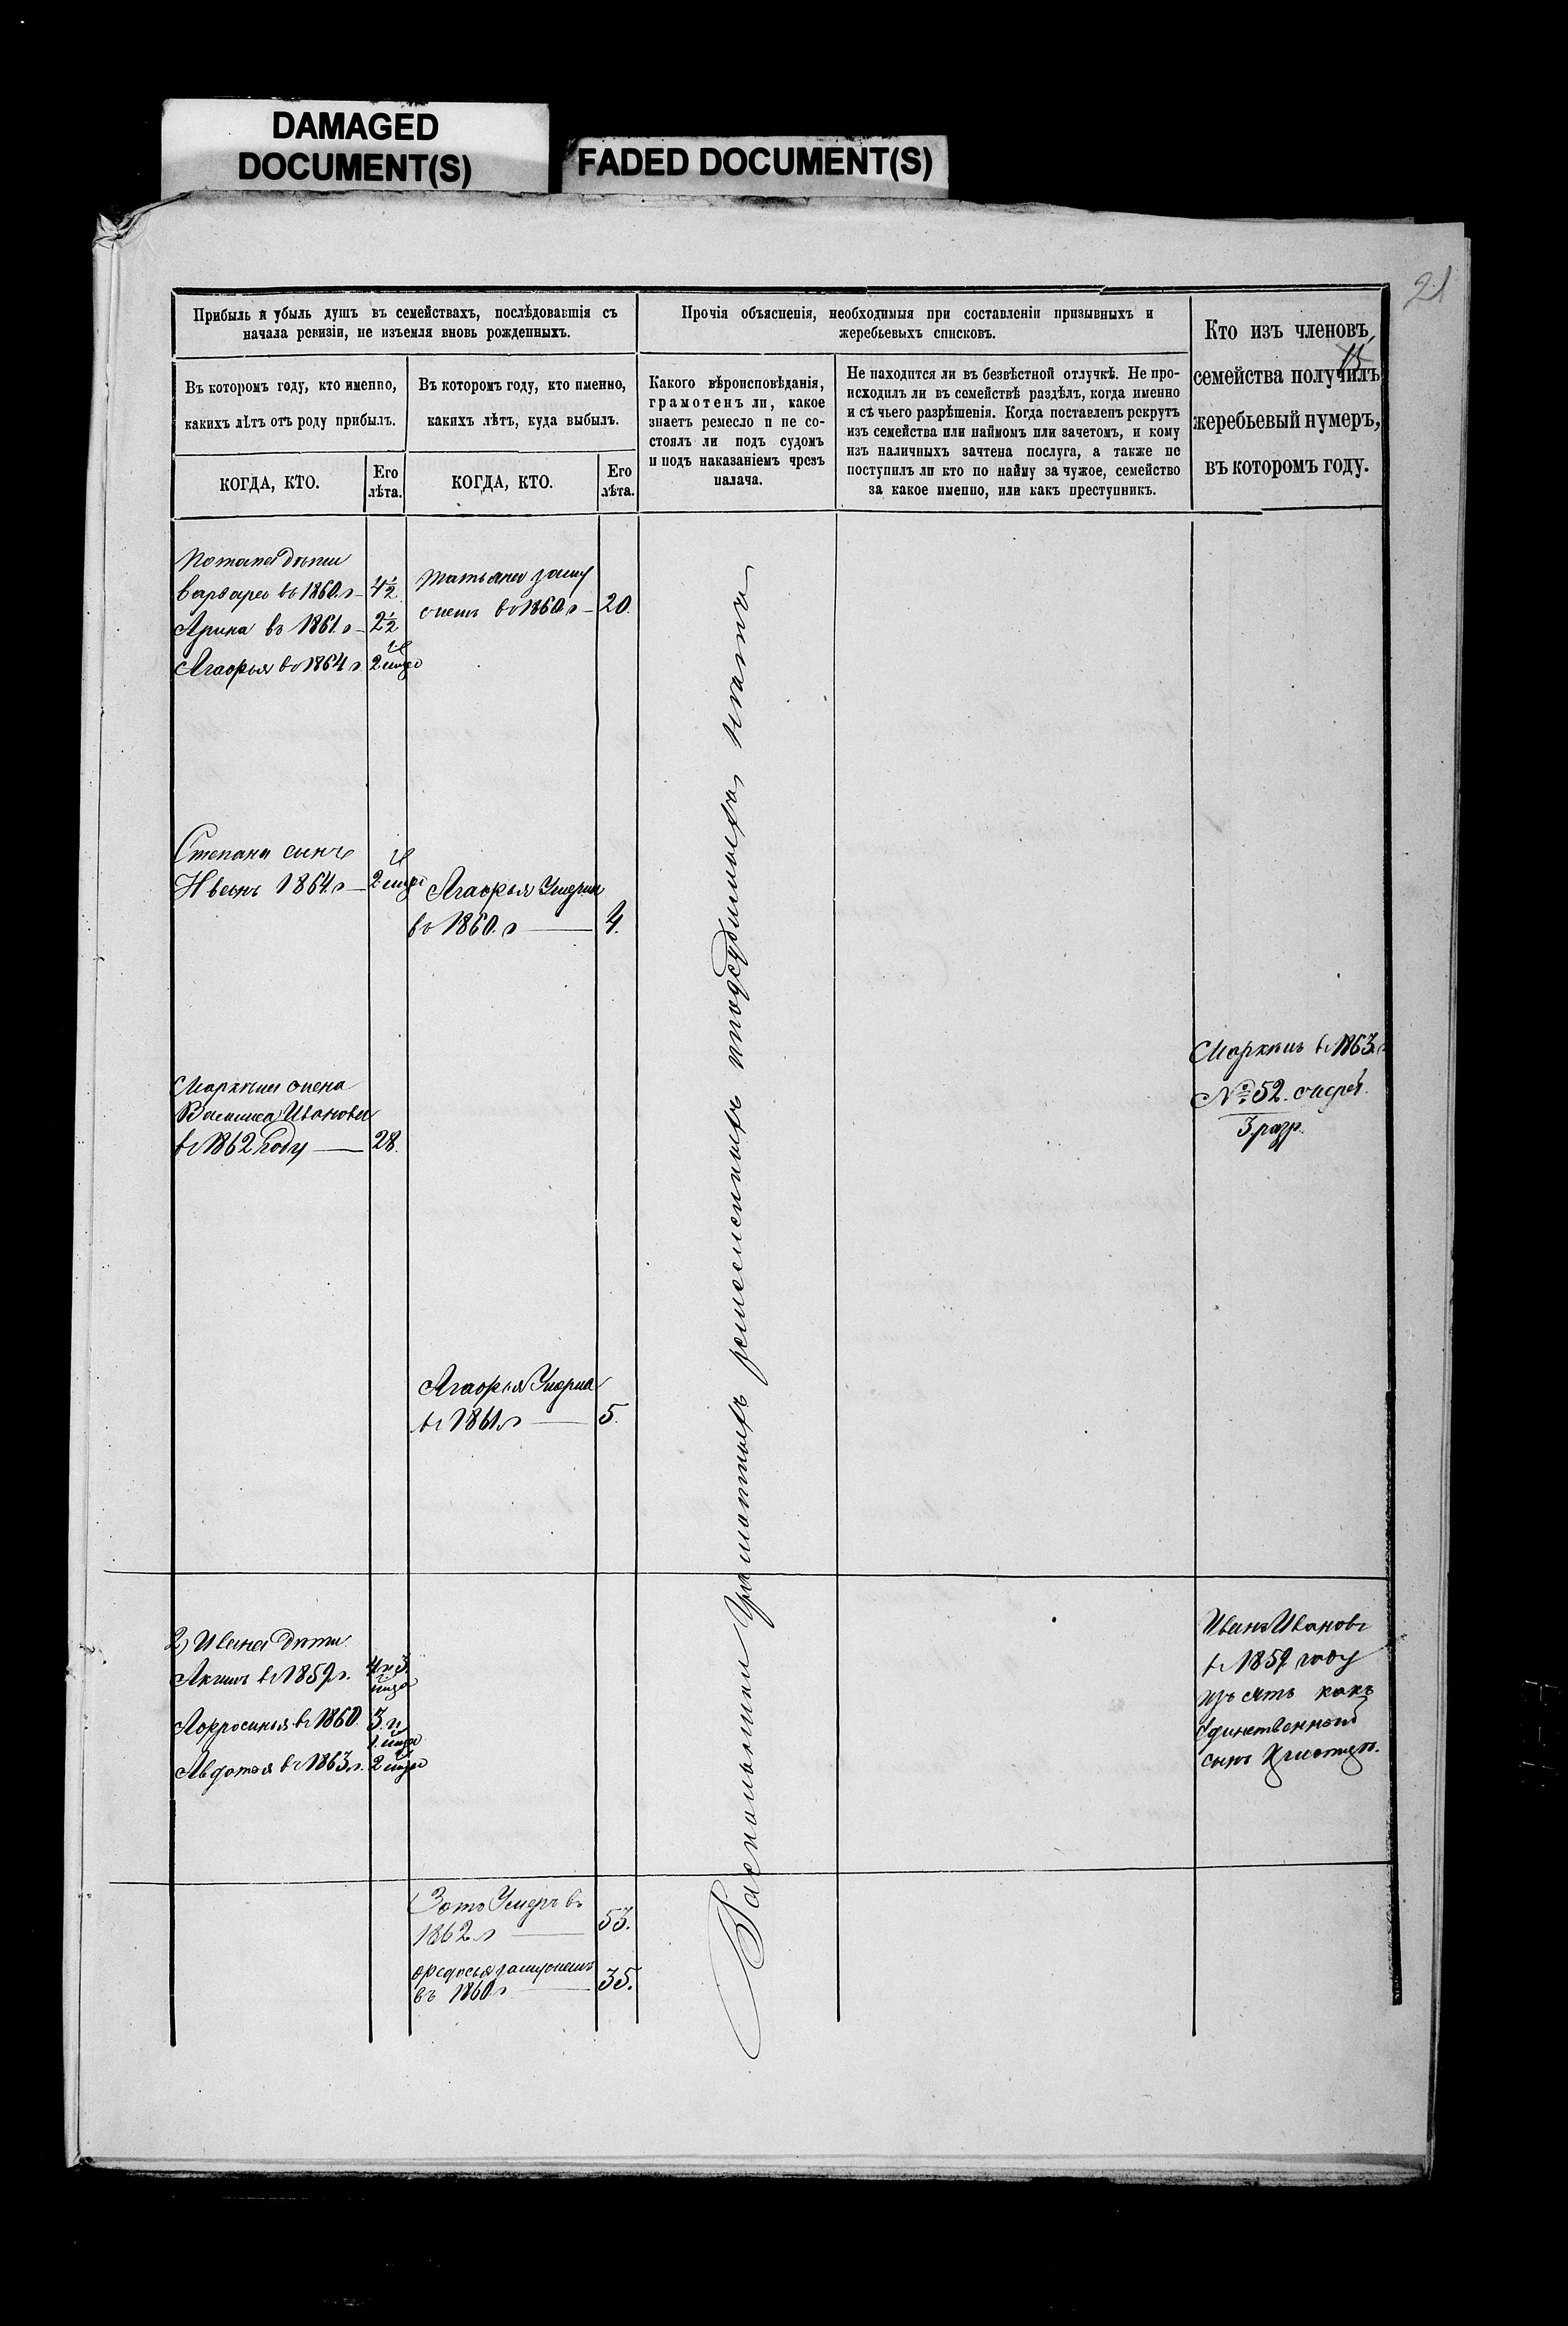 DAMAGED
DOCUMENT(S)
FADED DOCUMENT(S)
21
Прибыль и убыль душъ въ семействахъ, послѣдовавшія съ
начала ревизіи, не изъемля вновь рожденныхъ.
Въ которомъ году, кто именно,
какихъ лѣтъ отъ роду прибылъ.
КОГДА, КТО.
Его
лѣта.
Въ которомъ году, кто именно,
какихъ лѣтъ, куда выбылъ.
КОГДА, КТО.
Его
лѣта.
Прочія объясненія, необходимыя при составленіи призывныхъ и
жеребьевыхъ списковъ.
Какого вѣроисповѣданія,
грамотенъ ли, какое
знаетъ ремесло и не со-
стоялъ ли подъ судомъ
и подъ наказаніемъ чрезъ
палача.
Не находится ли въ безвѣстной отлучкѣ. Не про-
исходилъ ли въ семействѣ раздѣлъ, когда именно
и съ чьего разрѣшенія. Когда поставленъ рекрутъ
изъ семейства или наймомъ или зачетомъ, и кому
изъ наличныхъ зачтена послуга, а также не
поступилъ ли кто по найму за чужое, семейство
за какое именно, или какъ преступникъ.
Кто изъ членовъ
семейства получилъ
жеребьевый нумеръ,
въ которомъ году.
Потапа дѣти
Варвара въ 1860 г 4½
Арина въ 1861 г 2½
Агафья въ 1864 г 2
Татьяна заму
жемъ въ 1860 г 20
Степана сынъ
1864 г 2
Агафья Умерла
въ 1860 г 4.
Маркела жена
Василиса Иванова
въ 1862 году 28.
въ 1863 г
№ 52. очеред.
3 разр.
Агафья Умерла
въ 1861 г 5.
2) Ивана дѣти
въ 1859 г. 4
въ 1860 3
Авдотья въ 1863 г. 2
Иванъ Ивановъ
въ 1859 году
изъятъ какъ
единственный
сынъ
Зотъ Умеръ въ
1862 г 53.
Федосья замужемъ
въ 1860 г 35.
Раскольники Грамотныхъ ремесленныхъ и подсудимыхъ нѣтъ